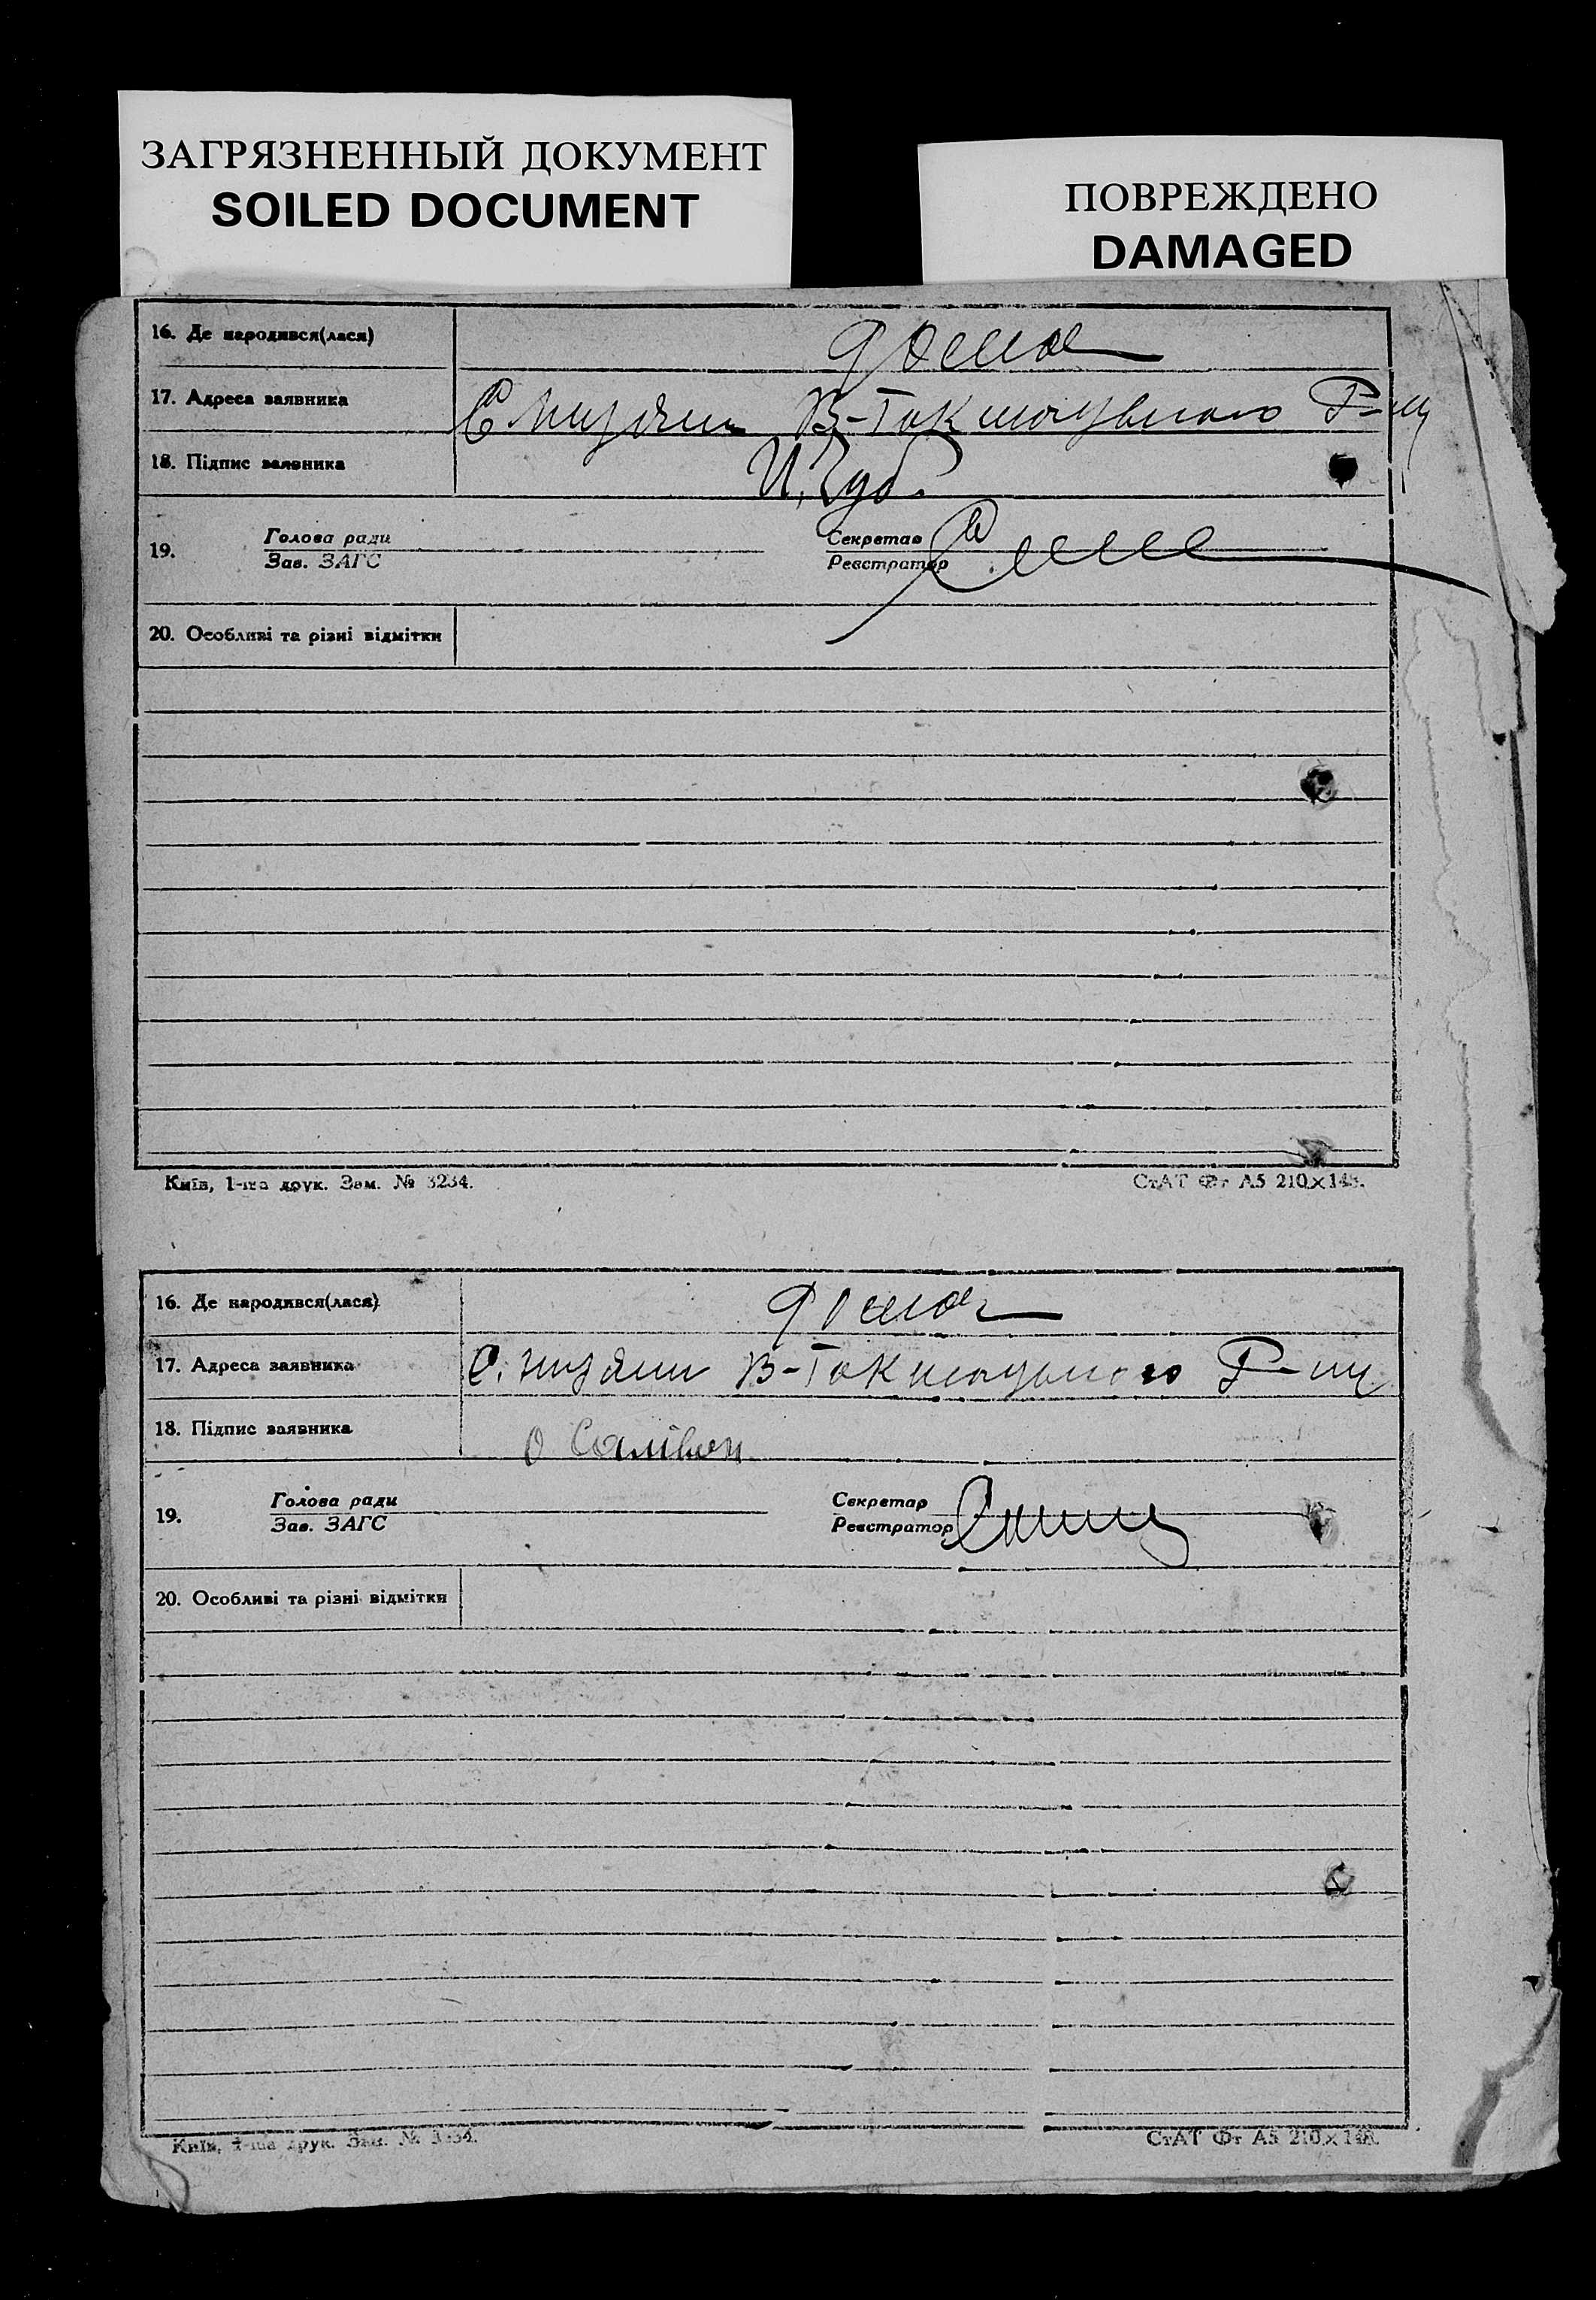 ЗАГРЯЗНЕННЫЙ ДОКУМЕНТ
SOILED DOCUMENT
ПОВРЕЖДЕНО
DAMAGED
16. Де народився(лася) дома
17. Адреса заявника В-Токмацького Р-ну
18. Підпис заявника
19. Голова ради Секретар
Зав. ЗАГС Реєстратор
20. Особливі та різні відмітки
Київ, 1-ша друк. Зам. № 3234. СтАТ Фт А5 210×148.
16. Де народився(лася) дома
17. Адреса заявника В-Токмацького Р-ну
18. Підпис заявника
19. Голова ради Секретар
Зав. ЗАГС Реєстратор
20. Особливі та різні відмітки
Київ, 1-ша друк. Зам. № 3234. СтАТ Фт А5 210×148.